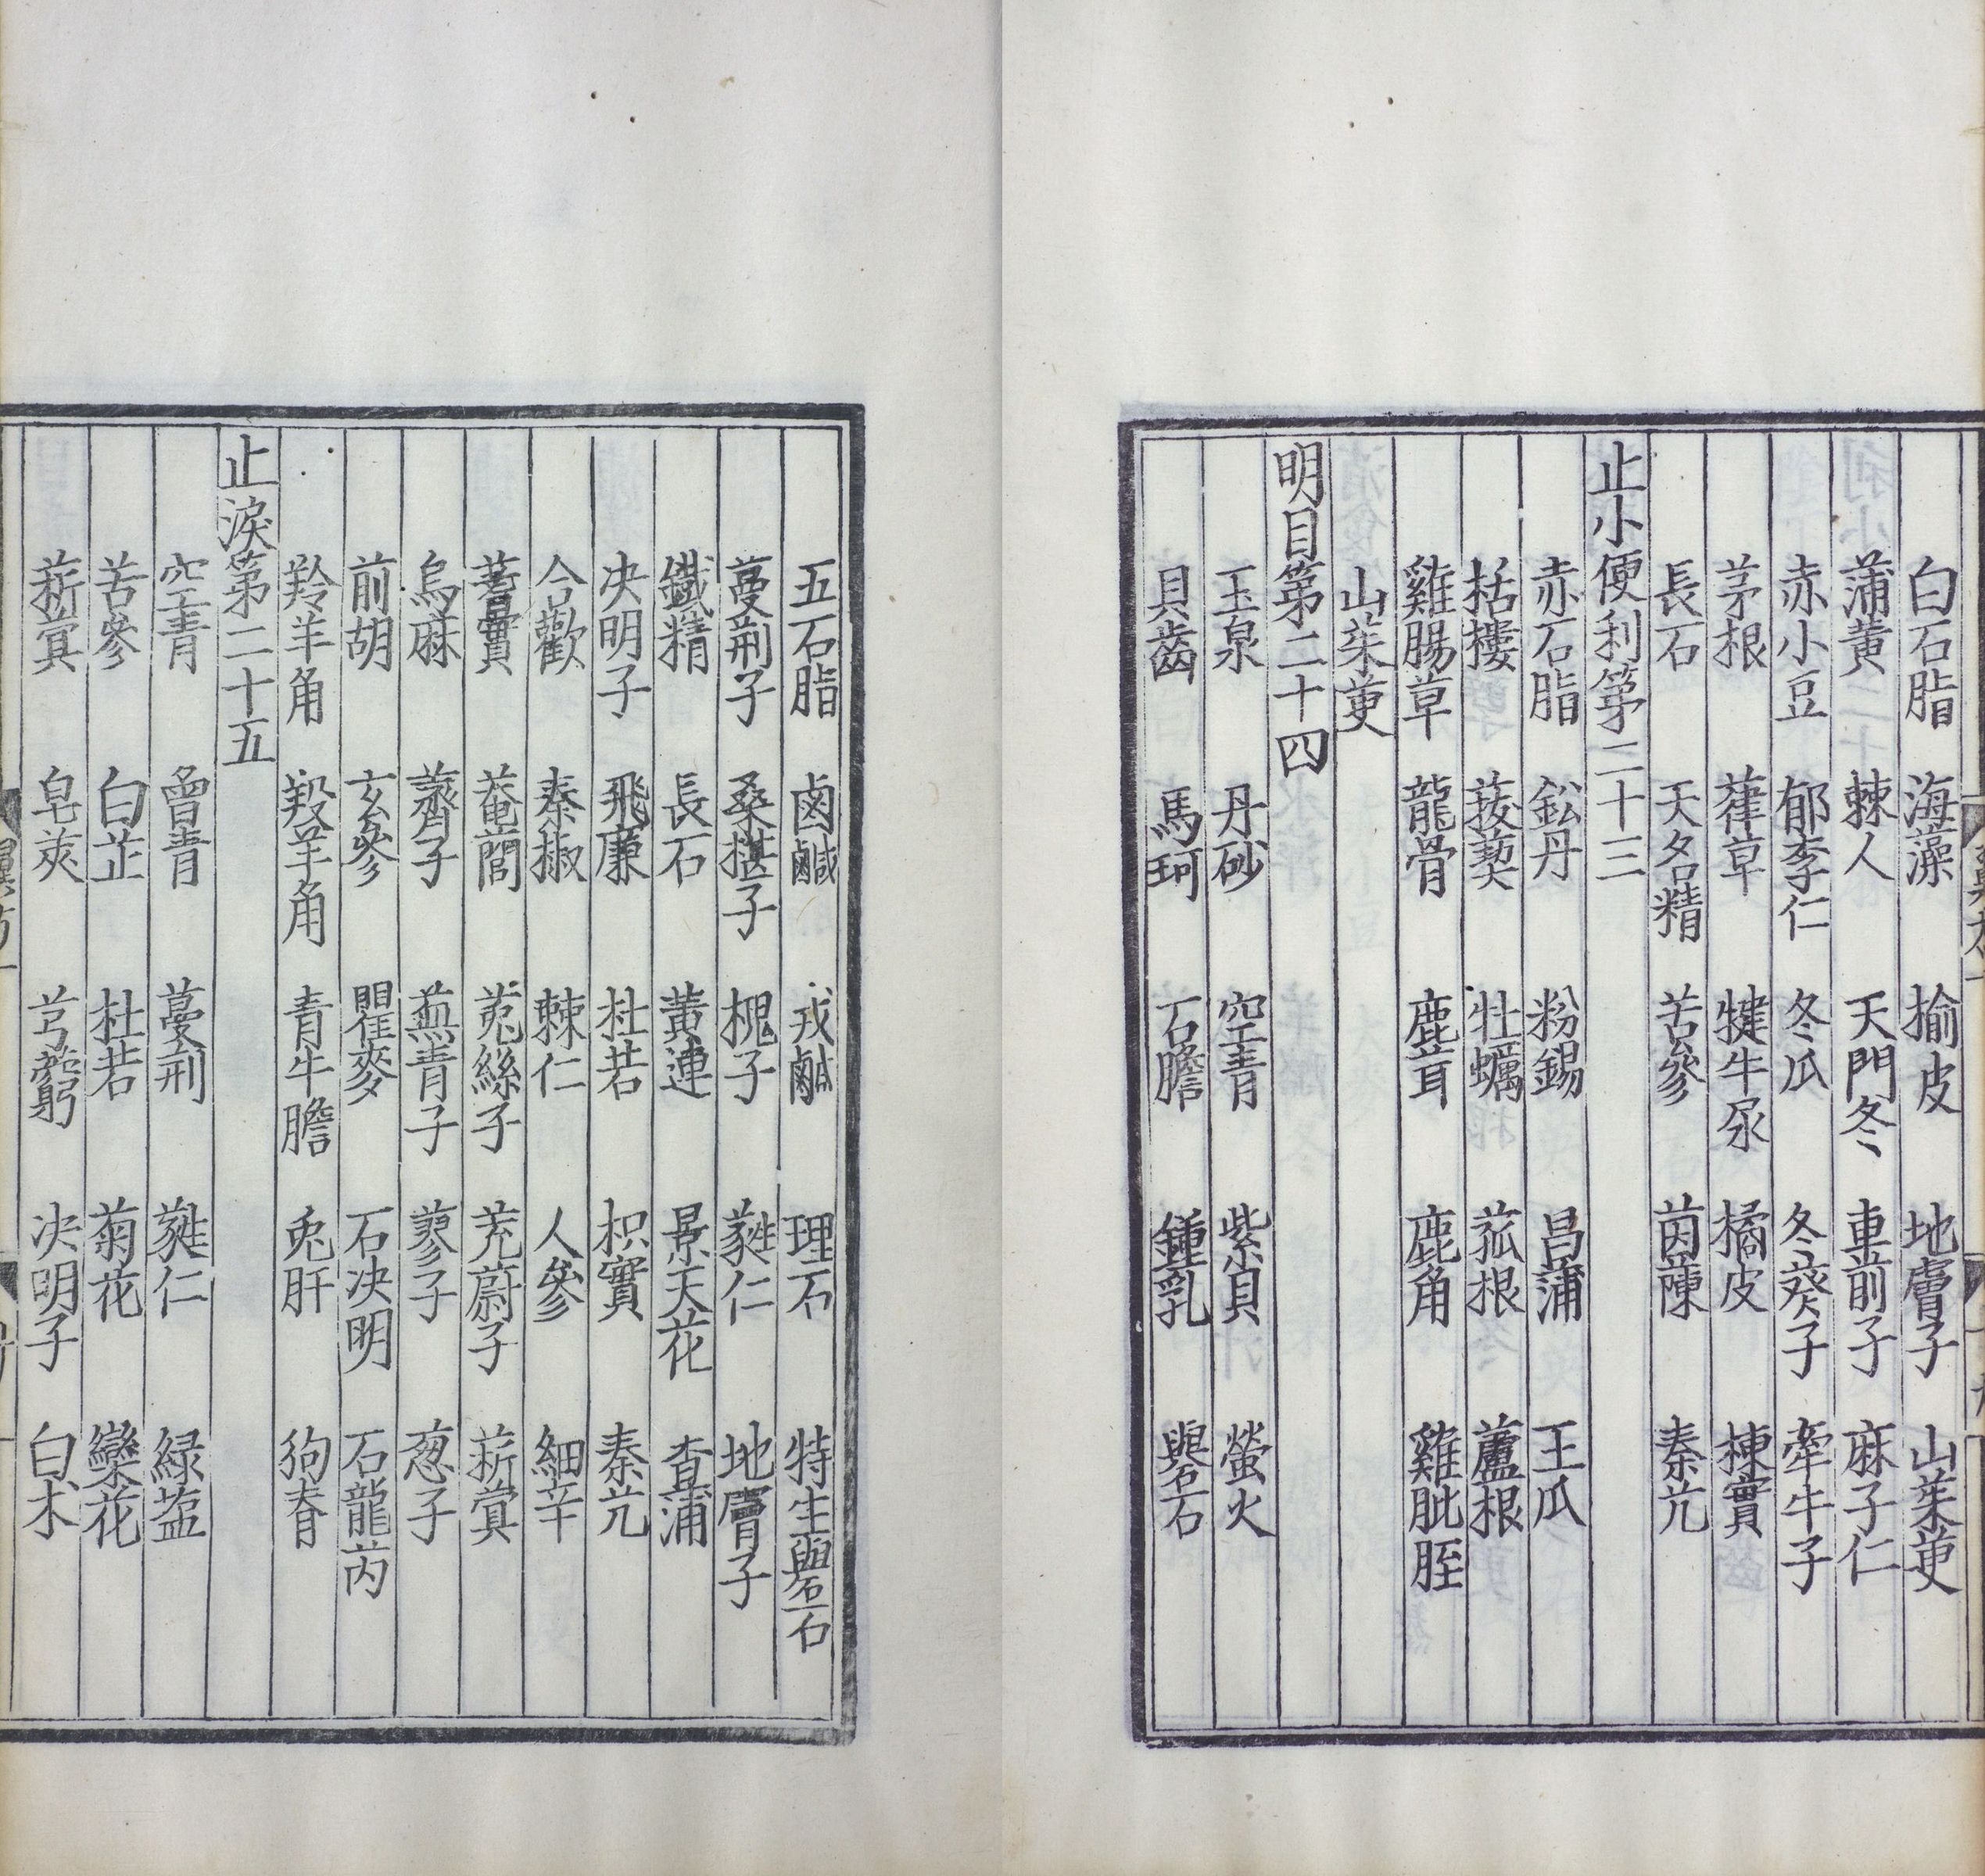 白石脂 海藻 揄皮 地膚子 山茱萸
蒲黄 棘人 天門冬 車前子 麻子仁
赤小豆 郁李仁 冬瓜 冬葵子 牽牛子
茅根 葎草 犍牛尿 橘皮 楝實
長石 天名精 苦參 茵蔯 秦艽
止小便利第二十三
赤石脂 鈆丹 粉錫 昌蒲 王瓜
栝樓 菝葜 牡蠣 菰根 蘆根
雞腸草 龍骨 鹿茸 鹿角 雞肶胵
山茱萸
明目第二十四
玉泉 丹砂 空青 紫貝 螢火
貝齒 馬珂 石膽 鍾乳 礜石
五石脂 鹵鹹 戎鹽 理石 特生礜石
蔓荆子 桑椹子 槐子 蕤仁 地膚子
鐵精 長石 黄連 景天花 査蒲
决明子 飛廉 杜若 枳實 秦艽
合歡 秦椒 棘仁 人參 細辛
蓍實 菴䕡 菟絲子 茺蔚子 菥蓂
烏麻 薺子 蕪青子 蓼子 葱子
前胡 玄參 瞿麥 石决明 石龍芮
羚羊角 羖羊角 青牛膽 兎肝 狗脊
止淚第二十五
空青 曾青 蔓荆 蕤仁 緑盐
苦參 白芷 杜若 菊花 欒花
菥蓂 皂莢 芎藭 决明子 白术